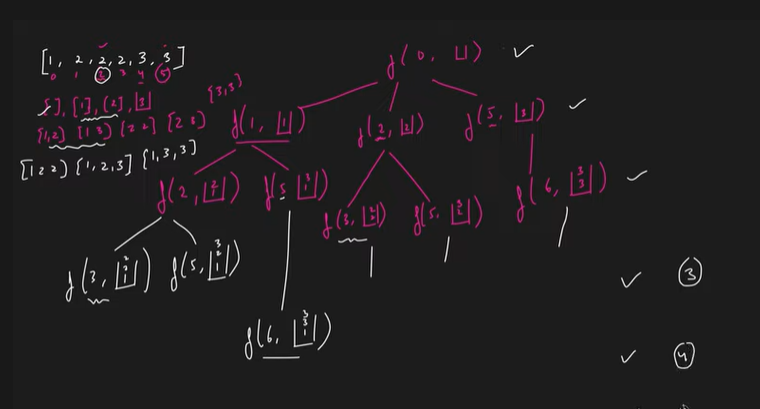 [1, 2, 2, 2, 3, 3]
0 1 2 3 4 5
[], [1], [2], [3]
[1,2] [1 3] [2 2] [2 3] [3,3]
[1 2 2] [1,2,3] [1,3,3]
f(0, [])
f(1, [1]) f(2, [2]) f(5, [3])
f(2, [2 1]) f(5 [3 1]) f(3, [2 2]) f(5, [3 2]) f(6, [3 3])
f(3, [2 2 1]) f(5, [3 2 1])
f(6, [3 3 1])
3
4